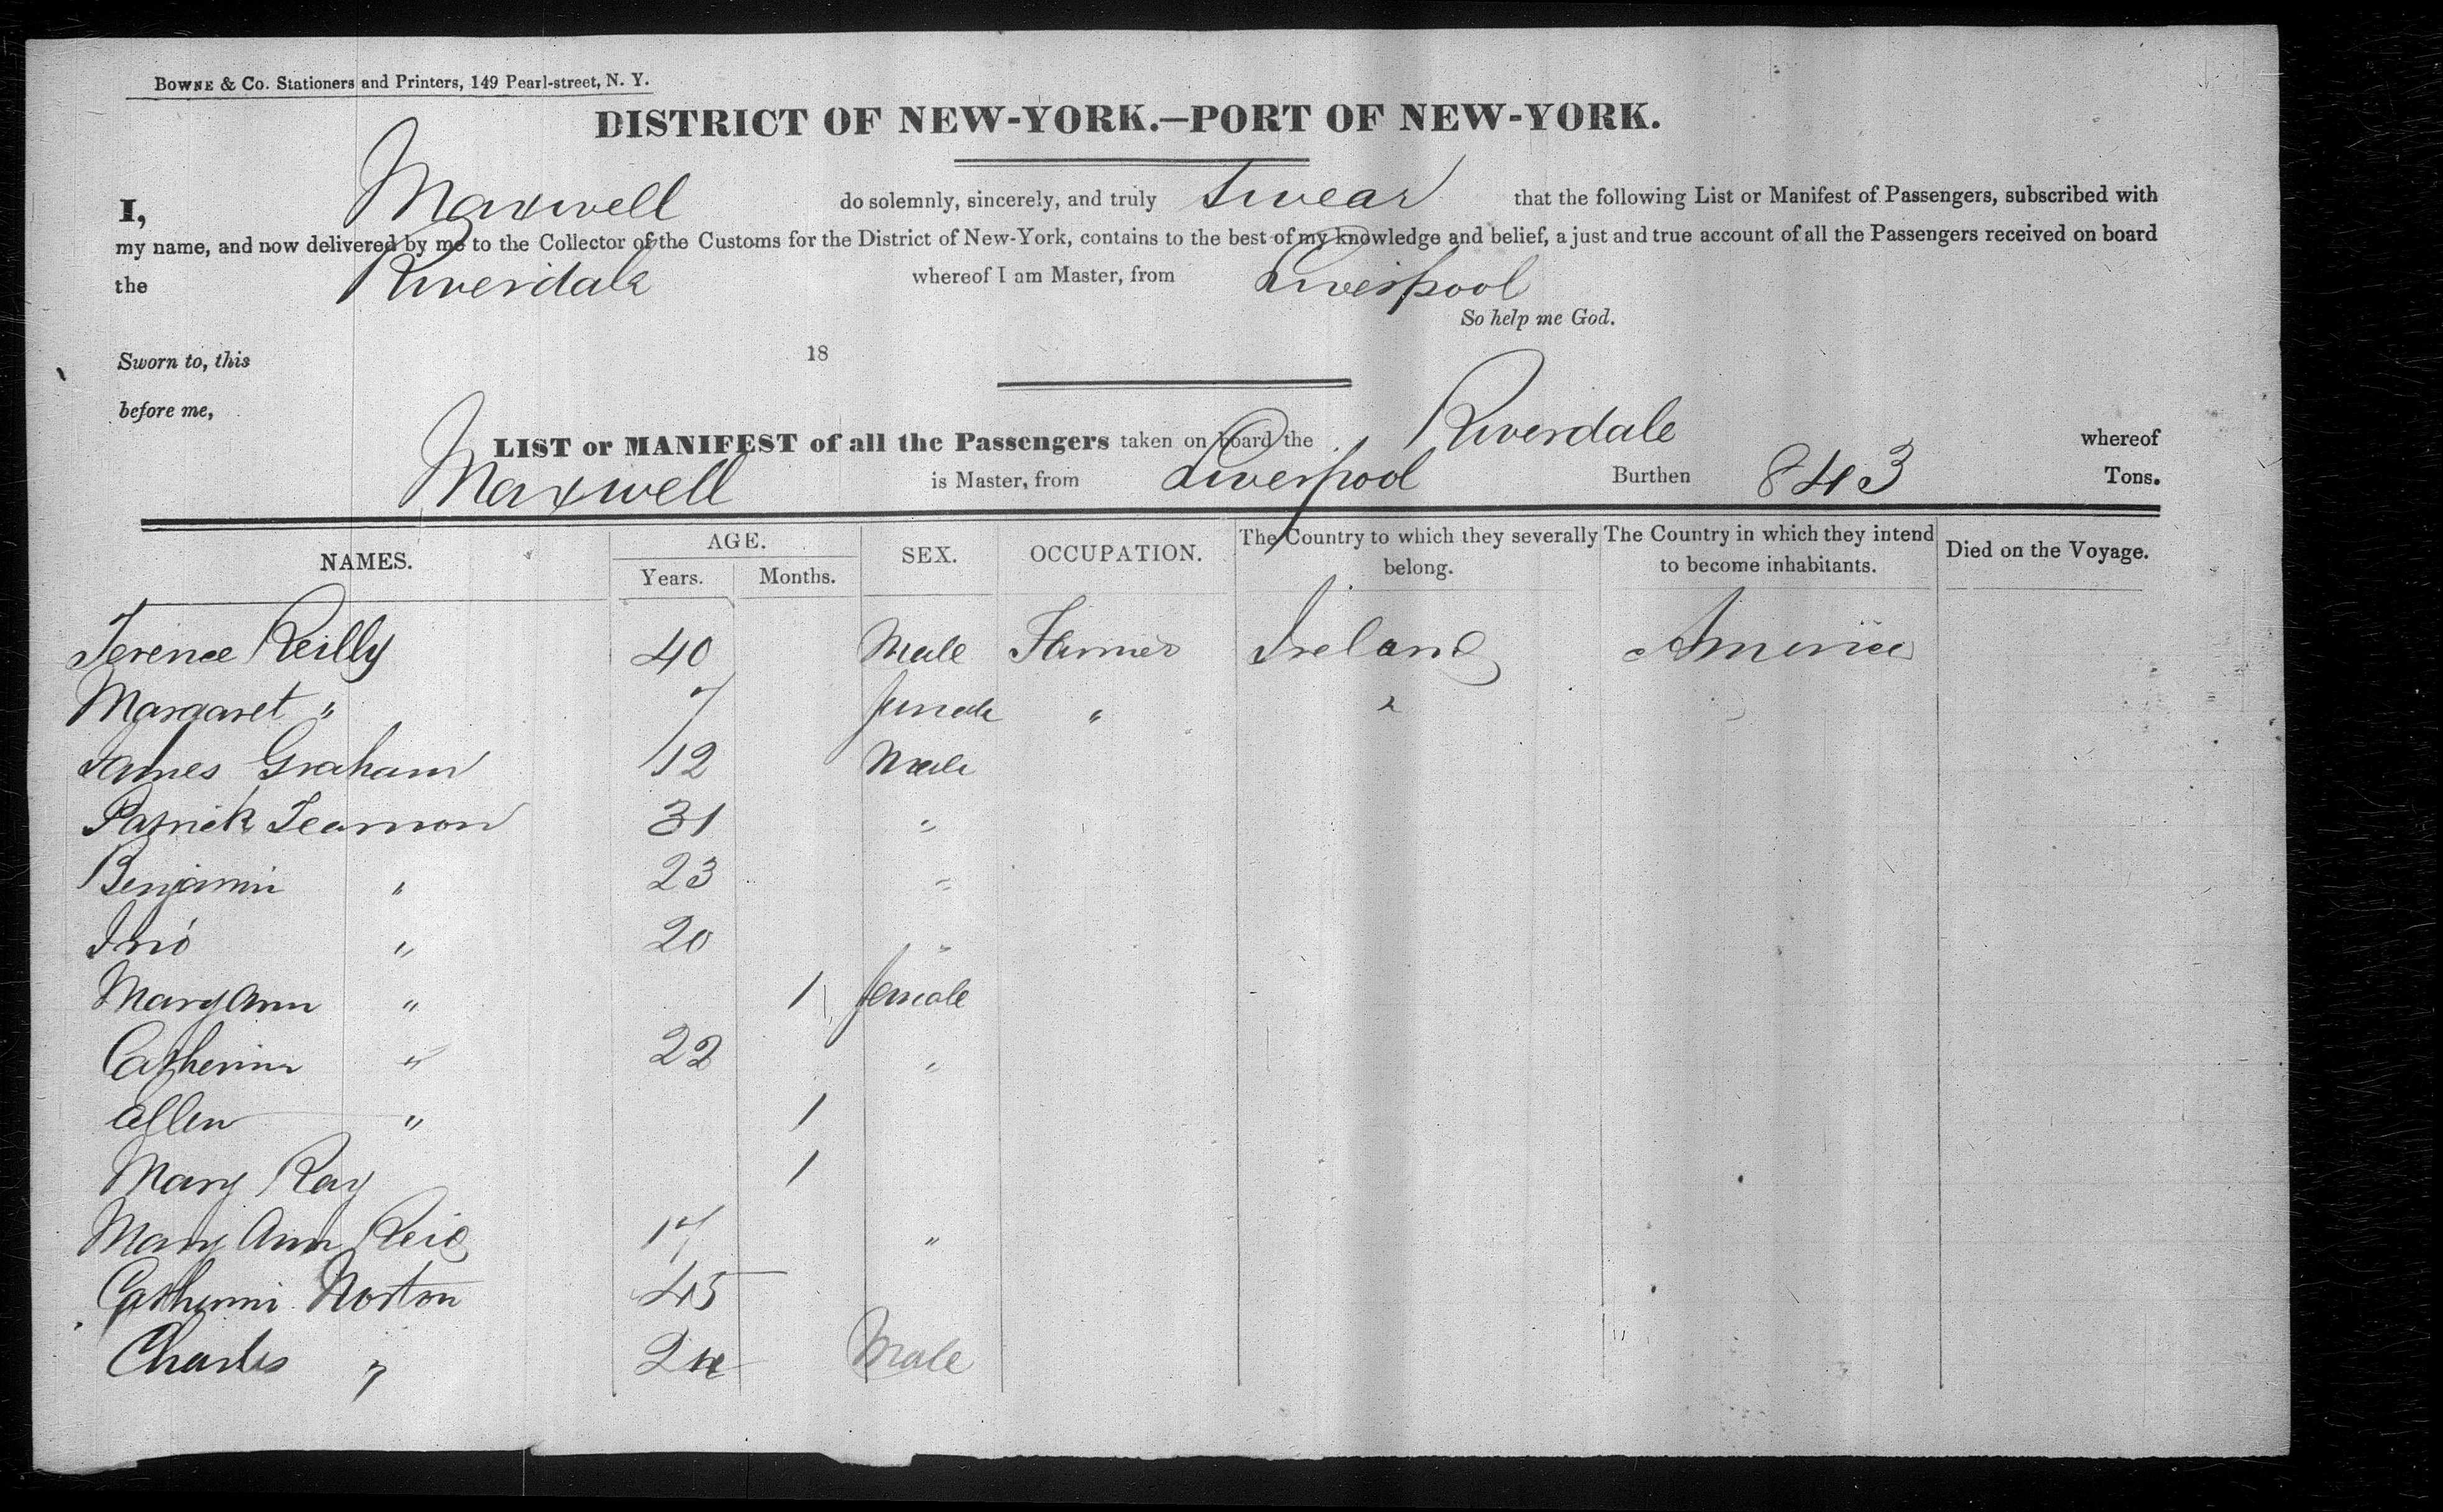 BOWNE & Co. Stationers and Printers, 149 Pearl-street, N. Y.
DISTRICT OF NEW-YORK.—PORT OF NEW-YORK.
I, Maxwell do solemnly, sincerely, and truly swear that the following List or Manifest of Passengers, subscribed with
my name, and now delivered by me to the Collector of the Customs for the District of New-York, contains to the best of my knowledge and belief, a just and true account of all the Passengers received on board
the Riverdale whereof I am Master, from Liverpool
So help me God.
Sworn to, this 18
before me,
LIST or MANIFEST of all the Passengers taken on board the Riverdale whereof
Maxwell is Master, from Liverpool Burthen 843 Tons.
NAMES. AGE. Years. Months. SEX. OCCUPATION. The Country to which they severally belong. The Country in which they intend to become inhabitants. Died on the Voyage.
Terence Reilly 40 Male Farmer Ireland America
Margaret " 7 female " "
James Graham 12 Male
Patrick 31 "
Benjamin " 23 "
" 20 "
Mary Ann " 1 female
Catherine " 22 "
Allen " 1
Mary Ray 1
Mary Ann Reid 17 "
Catherine Norton 45
Charles " 24 Male